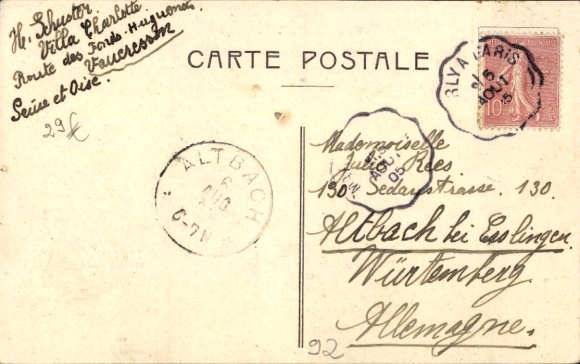 H. Schuster
Villa Charlotte
Route des Fonds-Huguenots
Vaucresson
Seine et Oise.
29
CARTE POSTALE
RLY A PARIS
AOUT
05
10
ALTBACH
6
AUG
6-7N
AOUT
05
Mademoiselle
Julie Rees
130. Sedanstrasse. 130.
Altbach bei Esslingen.
Würtemberg
Allemagne.
92